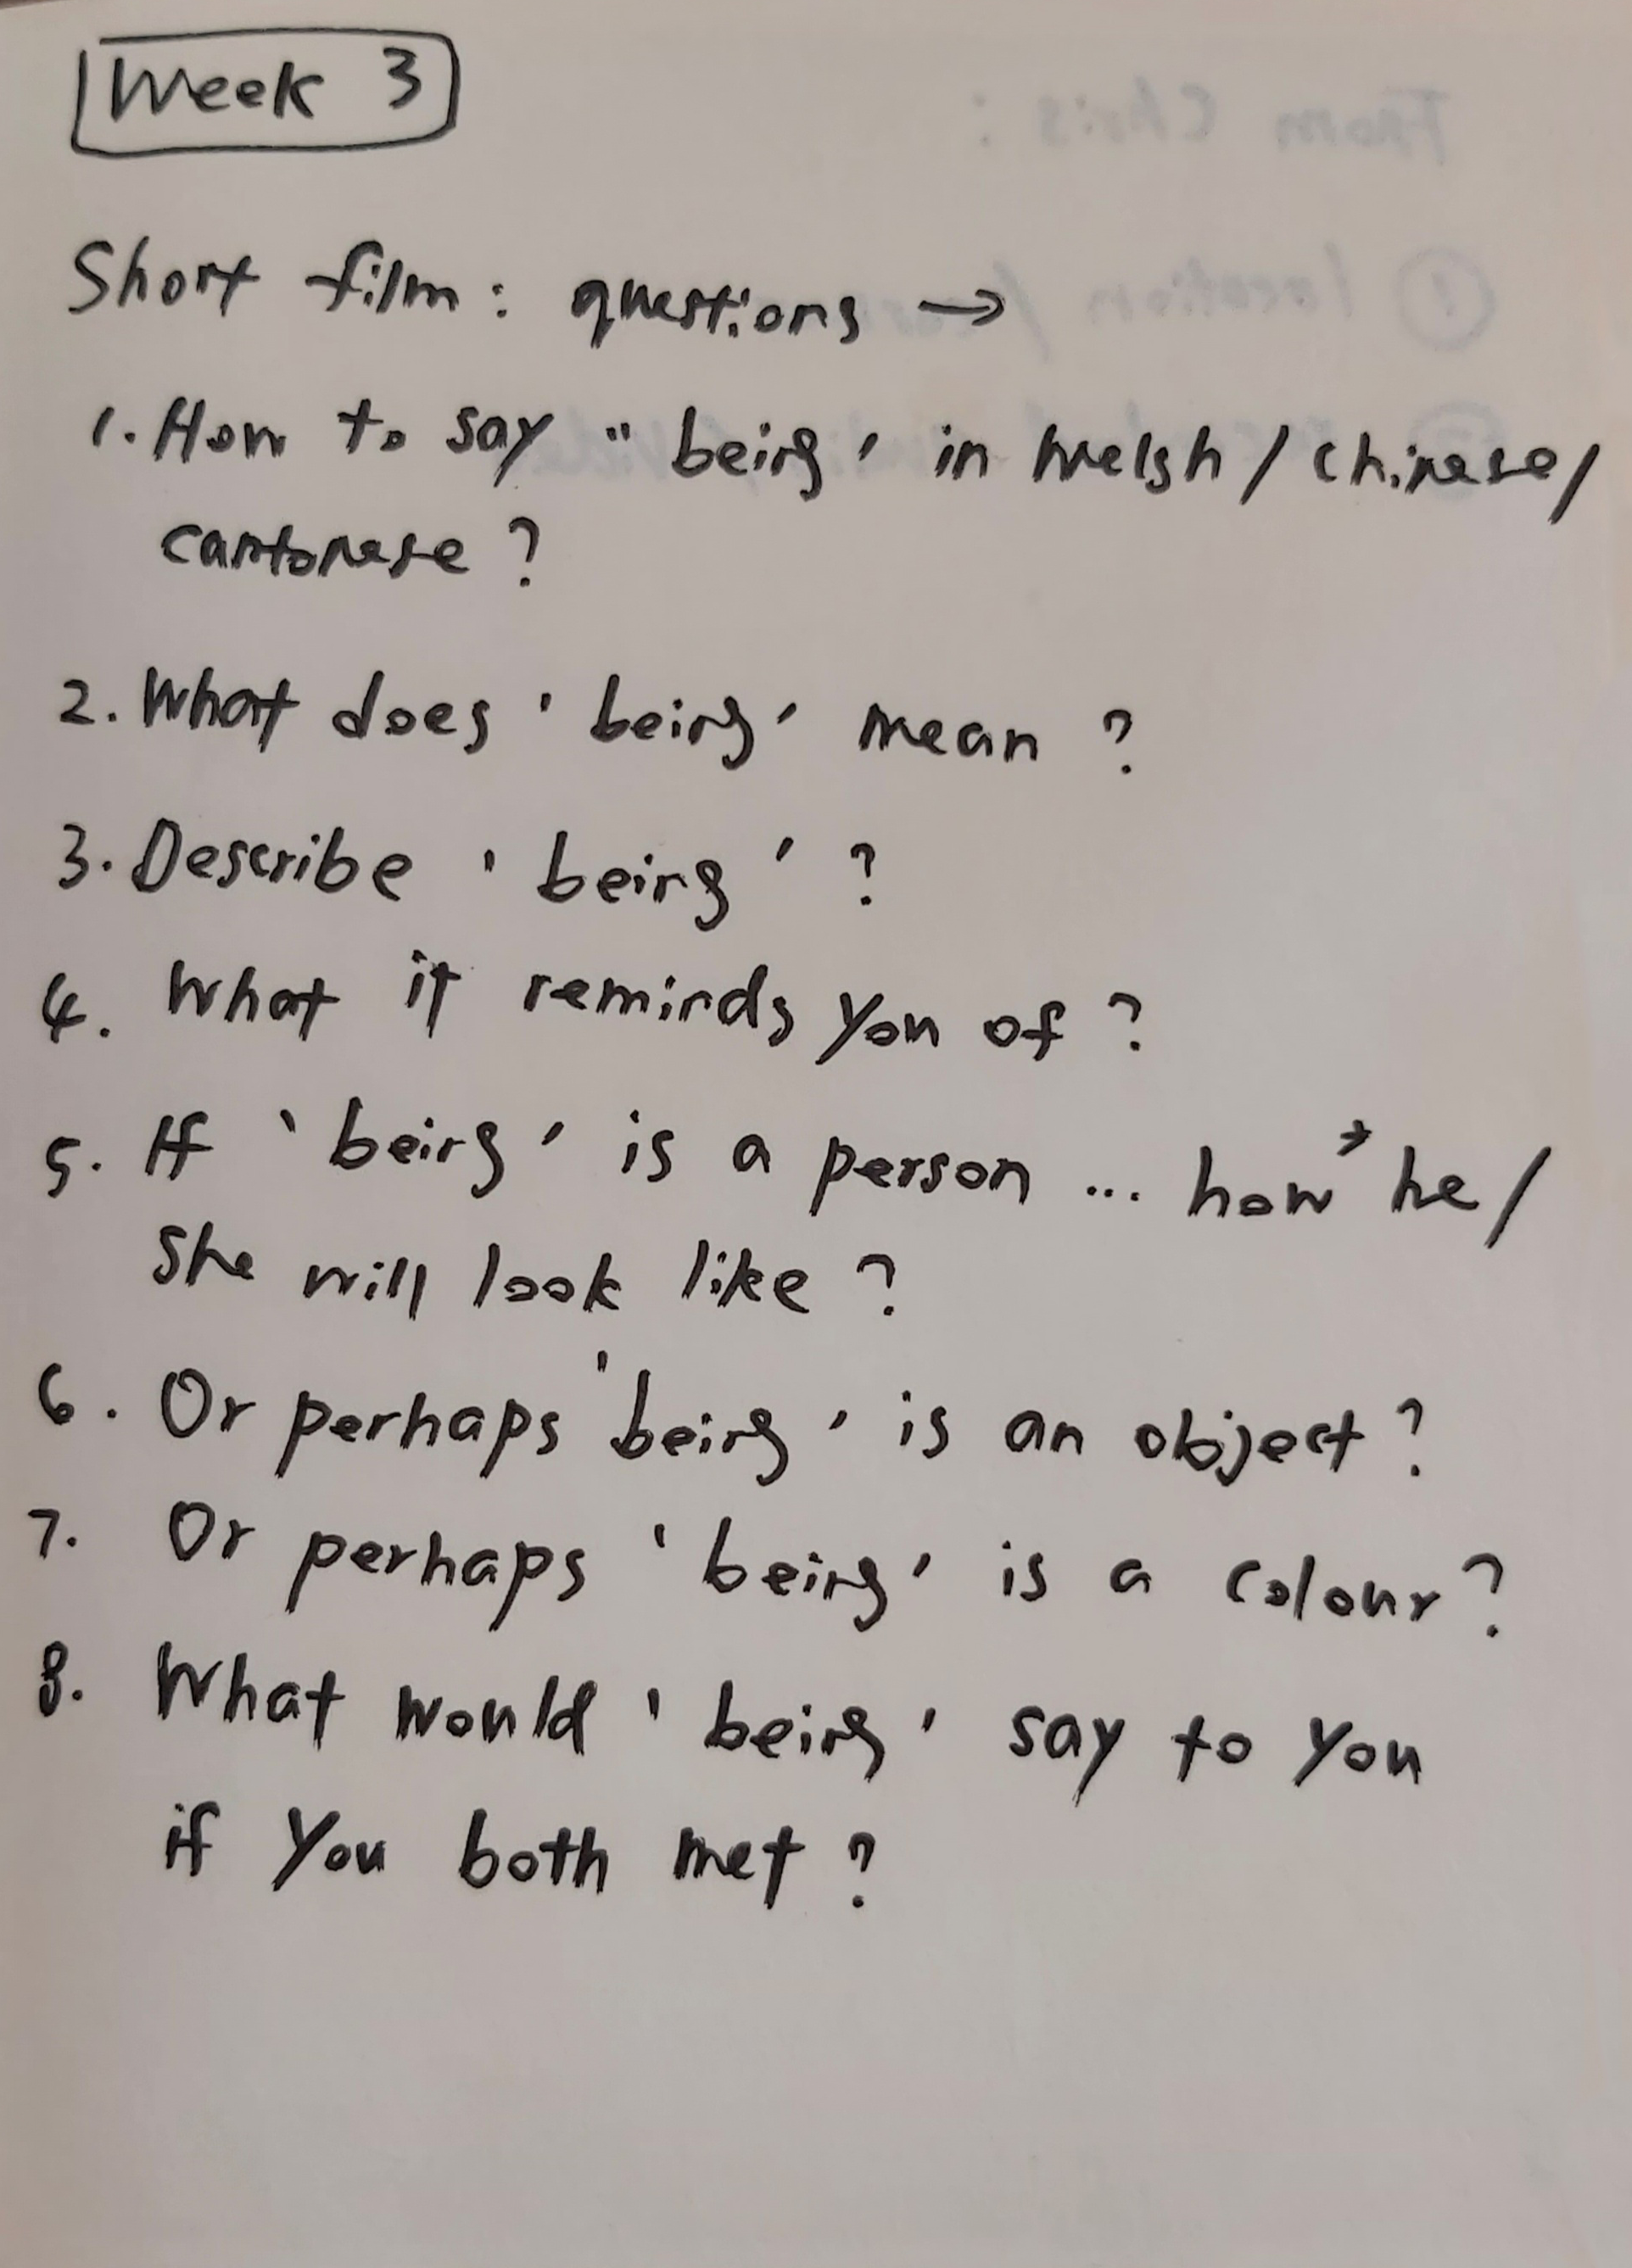 Week 3
Short film: questions →
1. How to say "being' in Welsh / Chinese /
cantonese ?
2. What does 'being' mean ?
3. Describe 'being' ?
4. What it reminds you of ?
5. If 'being' is a person ... how → he /
she will look like ?
6. Or perhaps 'being' is an object ?
7. Or perhaps 'being' is a colour ?
8. What would 'being' say to you
if you both met ?
From Chris :
① location /
②